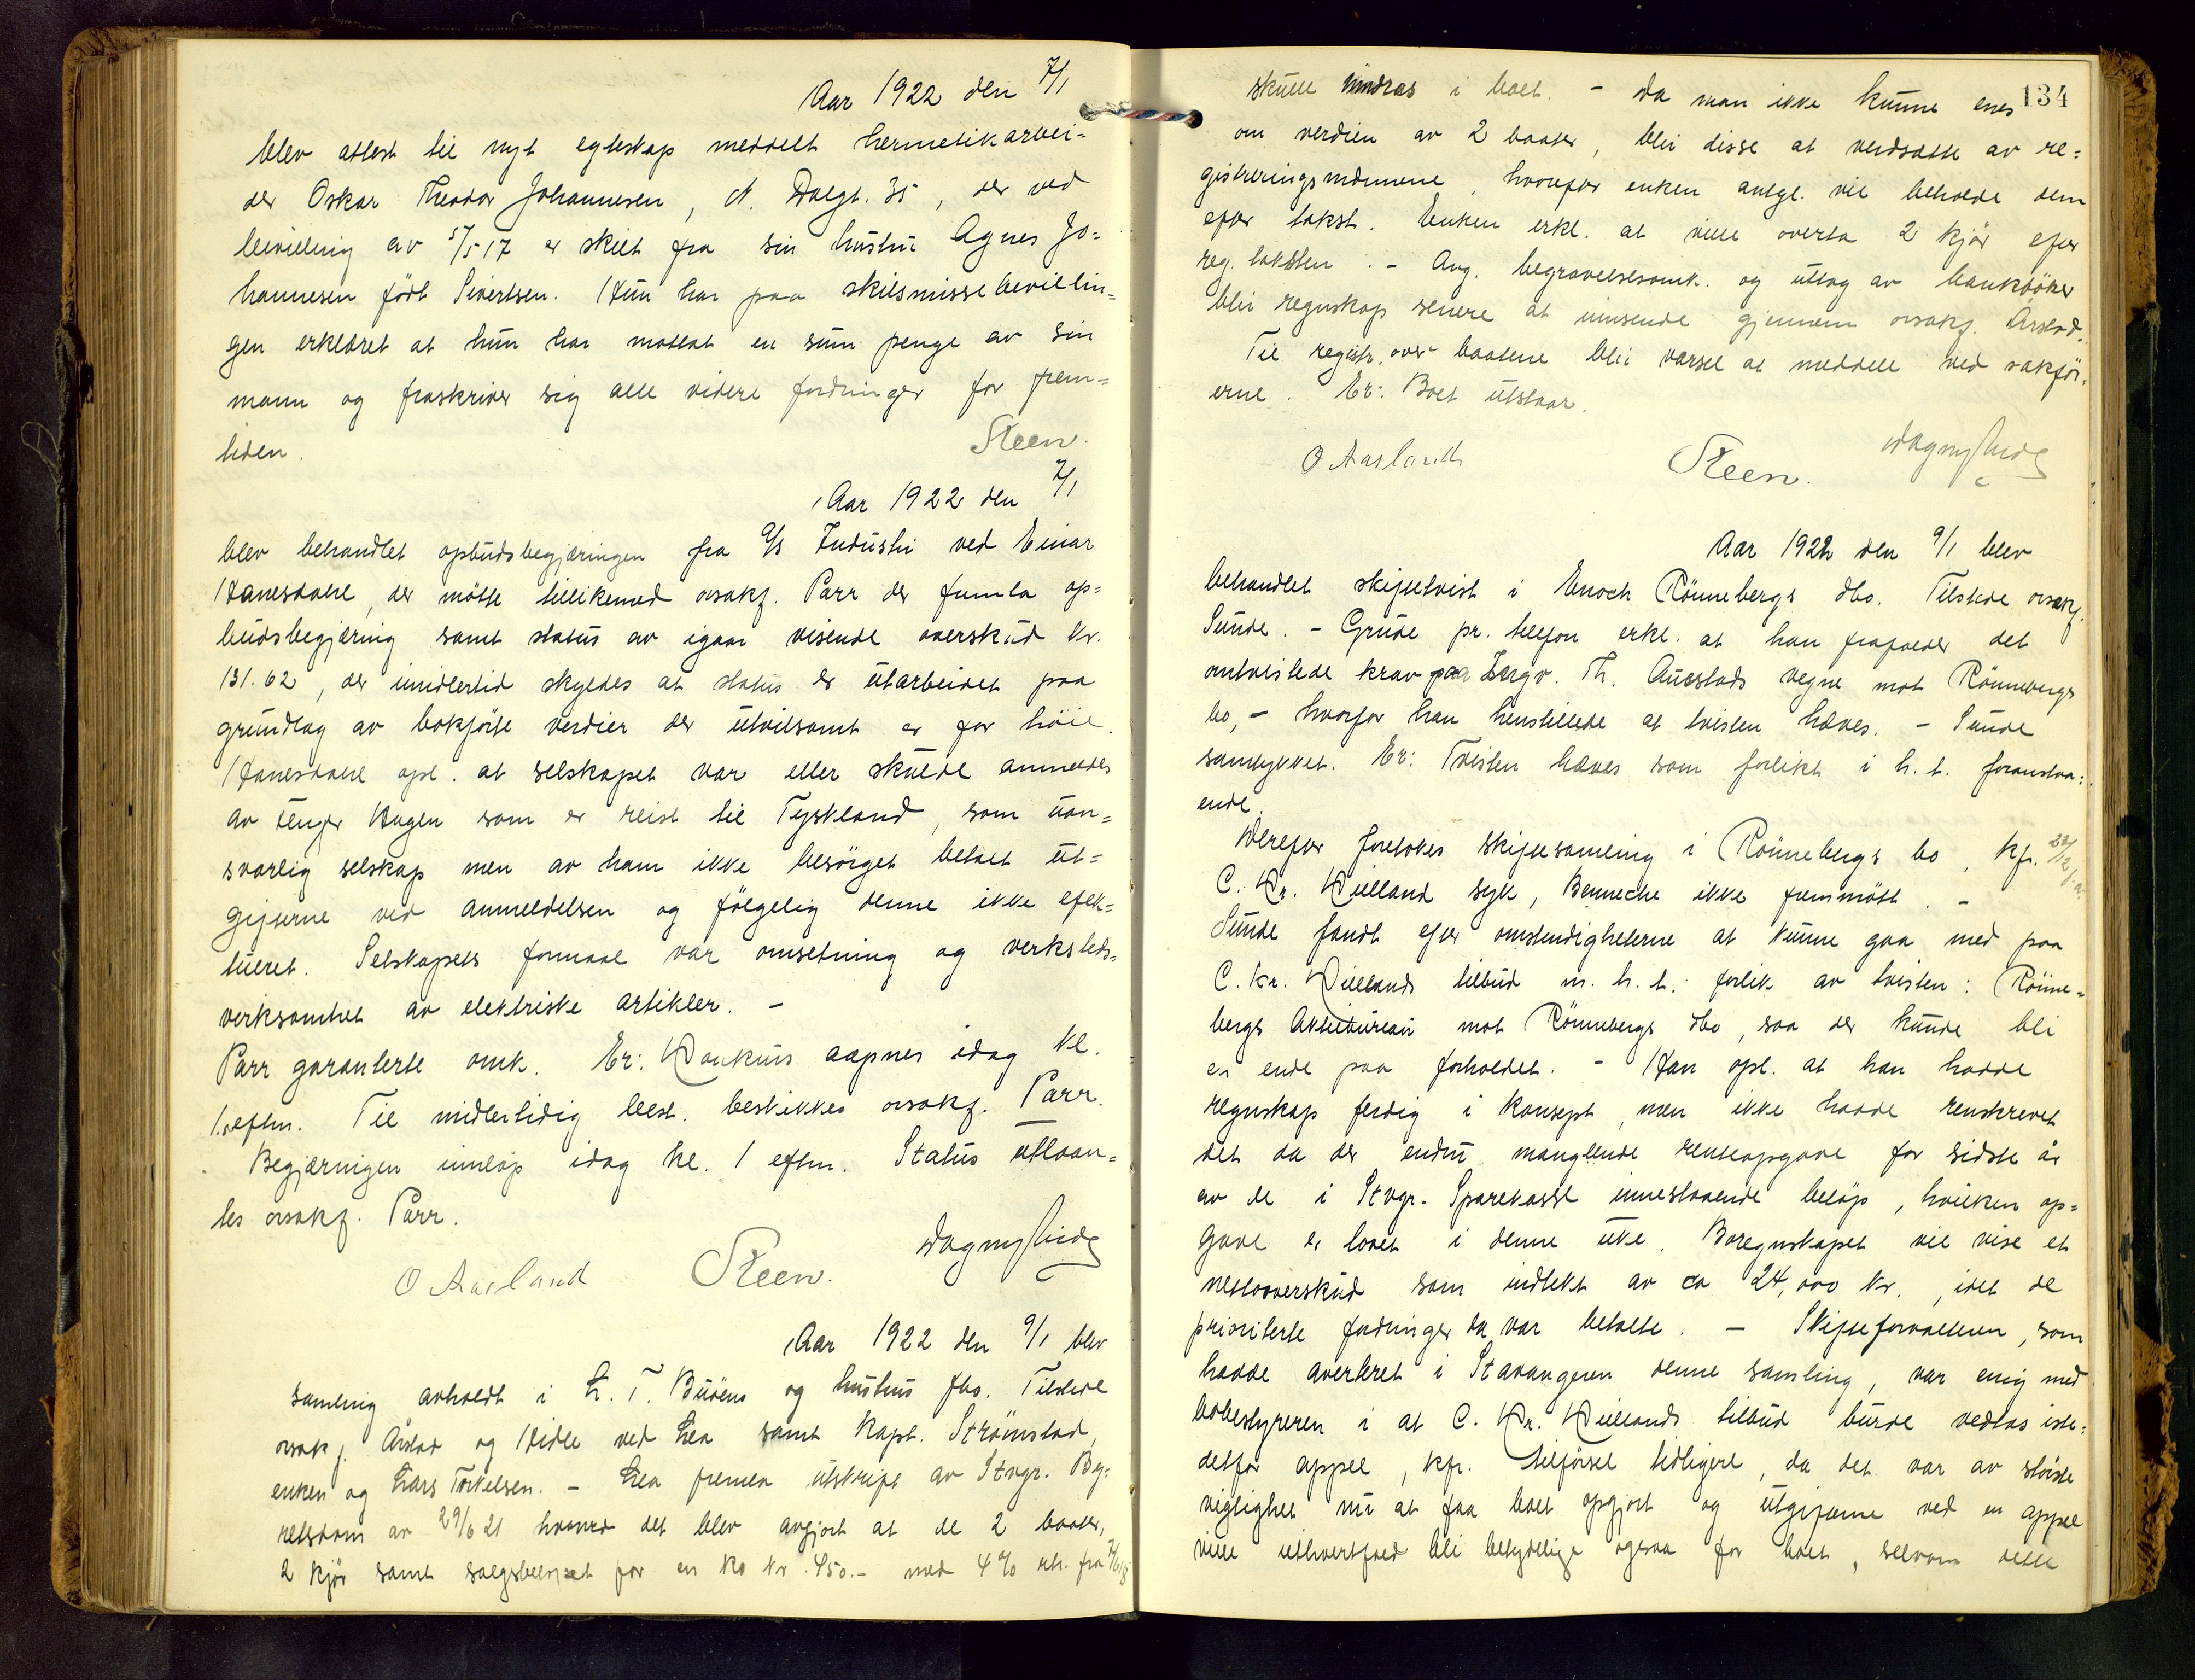 Aar 1922 den 7/1
blev attest til nyt egteskap meddelt hermetikarbei-
der Oskar Theodor Johannesen, N. Dalgt. 35, der ved
bevilling av 5/5 17 er skilt fra sin hustru Agnes Jo-
hannesen födt Sivertsen. Hun har paa skilsmissebevillin-
gen erklæret at hun har mottat en sum penge av sin
mann og fraskriver sig alle videre fordringer for frem-
tiden.
Steen.
Aar 1922 den 7/1
blev behandlet opbudsbegjæringen fra A/S Industri ved Einar
Hanesdahl, der mötte tillikemed osakf. Parr der fremla op-
budsbegjæring samt status av igaar visende overskud kr.
131.62, der imidlertid skyldes at status er utarbeidet paa
grundlag av bokförte verdier der utvilsomt er for höie.
Hanesdahl opl. at selskapet var eller skulde anmeldes
av Hagen som er reist til Tyskland, som uan-
svarlig selskap men av ham ikke besörget betalt ut-
gifterne ved anmeldelsen og fölgelig denne ikke efek-
tueret. Selskapets formaal var omsetning og verksteds-
virksomhet av elektriske artikler. -
Parr garanterte omk. Er: Konkurs aapnes idag kl.
1 eftm. Til midlertidig best. beskikkes osakf. Parr.
Begjæringen innlöp idag kl. 1 eftm. Status utlaan-
tes osakf. Parr.
O Aarland Steen. Dagny Lide
Aar 1922 den 9/1 blev
samling avholdt i L. T. Buöens og hustrus fbo. Tilstede
osakf. Årstad og Hidle ved Lea samt kapt. Strömstad,
enken og Lars Torkelsen. - Lea fremla utskrift av Stvgr. By-
retsdom av 29/6 21 hvorved det blev avgjort at de 2 baater,
2 kjör samt salgsbelöpet for en ko kr. 450.- med 4% rte. fra
134
skulle inndras i boet. - Da man ikke kunne enes
om verdien av 2 baater, blir disse at verdsætte av re-
gistreringsmænnene, hvorefter enken antgl. vil beholde dem
efter takst. Enken erkl. at ville overta 2 kjör efter
reg. taksten. - Ang. begravelsesomk. og uttag av bankböker
blir regnskap senere at innsende gjennem osakf. Årstad.
Til registr. over baatene blir varsel at meddele ved sakför-
erne. Er: Boet utstaar.
O Aarland Steen. Dagny Lide
Aar 1922 den 9/1 blev
behandlet skiftetvist i Enoch Rönnebergs dbo. Tilstede osakf.
Sunde. - Grude pr. telefon erkl. at han frafalder det
omtvistede krav paa Ingv. Th. Auestads vegne mot Rönnebergs
bo, - hvorfor han henstillede at tvisten hæves. - Sunde
samtykket. Er: Tvisten hæves som forlikt i h. t. foranstaa-
ende.
Derefter foretokes skiftesamling i Rönnebergs bo, kfr. 22/12 f.a.
C. Kr. Kielland syk, Benneche ikke fremmött. -
Sunde fandt efter omstendigheterne at kunne gaa med paa
C. Kr. Kiellands tilbud m. h. t. forlik av tvisten: Rönne-
bergs Aktiebureau mot Rönnebergs dbo, saa der kunde bli
en ende paa forholdet. - Han opl. at han hadde
regnskap ferdig i konsept, men ikke hadde renskrevet
det da der endnu manglende renteopgave for sidste år
av de i Stvgr. Sparekasse innestaaende belöp, hvilken op-
gave er lovet i denne uke. Boregnskapet vil vise et
nettooverskud som indtekt av ca 24,000 kr., idet de
prioriterte fordringer da var betalte. - Skifteforvalteren, som
hadde averteret i Stavangeren denne samling, var enig med
bobestyreren i at C. Kr. Kiellands tilbud burde vedtas iste-
detfor appel, kfr. tilförsel tidligere, da det var av störste
vigtighet nu at faa boet opgjort og utgifterne ved en appel
ville ialhvertfald bli betydelige ogsaa for boet, selvom dette